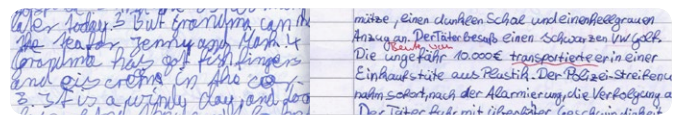 later today. 3 But Grandma can the
the tea for Jenny and Mark. 4
Grandma has got fish fingers
and eiscreme in the
3. It is a windy day, and
mütze, einen dunklen Schal und einen hellgrauen
Anzug an. Der Täter besaß einen schwarzen VW Golf.
Beute von
Die ungefähr 10.000€ transportierte er in einer
Einkaufstüte aus Plastik. Der Polizei-Streifenw
nahm sofort, nach der Alarmierung, die Verfolgung a
Der Täter fuhr mit überhöhter Geschwindigkeit